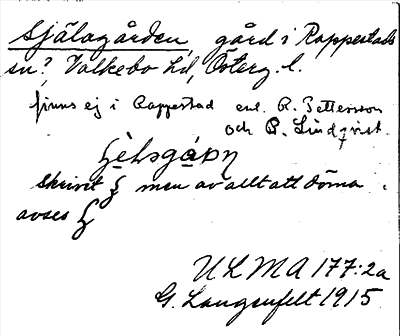 Själagården, gård i Rappestads
sn?, Valkebo hd, Österg. l.
finns ej i Rappestad enl. R. Pettersson
och P. Lindqvist.
skrivet ꞩ men av allt att döma
avses
ULMA 177:2a
G. Langenfelt 1915